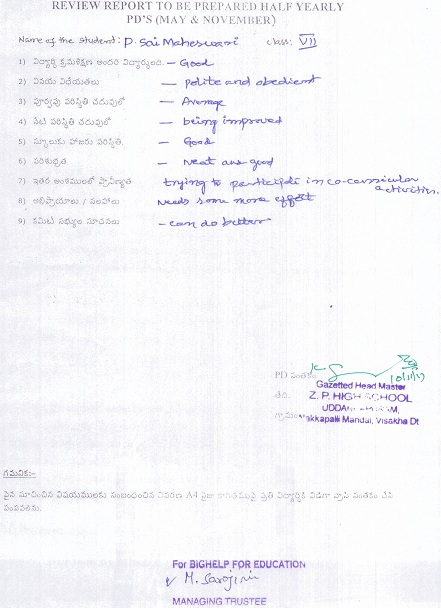 REVIEW REPORT TO BE PREPARED HALF YEARLY
PD'S (MAY & NOVEMBER)
Name of the student: P. Sai Maheswari class: VII
1) విద్యార్థి క్రమశిక్షణ అందరి విద్యార్థులందు. - Good
2) వినయ విధేయతలు - polite and obedient
3) పూర్వపు పరిస్థితి చదువులో - Average
4) నేటి పరిస్థితి చదువులో - being improved
5) స్కూలుకు హాజరు పరిస్థితి. - Good
6) పరిశుభ్రత - Neat and good
7) ఇతర అంశములలో ప్రావీణ్యత trying to participate in co-curricular activities.
8) అభిప్రాయాలు / సలహాలు needs some more effort
9) కమిటీ సభ్యుల సూచనలు - can do better
PD సంతకం
Gazetted Head Master
తేది. Z. P. HIGH SCHOOL
గ్రామం
Visakha Dt
గమనిక:-
పైన సూచించిన విషయములకు సంబంధించిన వివరణ A4 సైజు కాగితముపై ప్రతి విద్యార్థికి విడిగా వ్రాసి సంతకం చేసి
పంపవలెను.
For BIGHELP FOR EDUCATION
M. Sarojini
MANAGING TRUSTEE